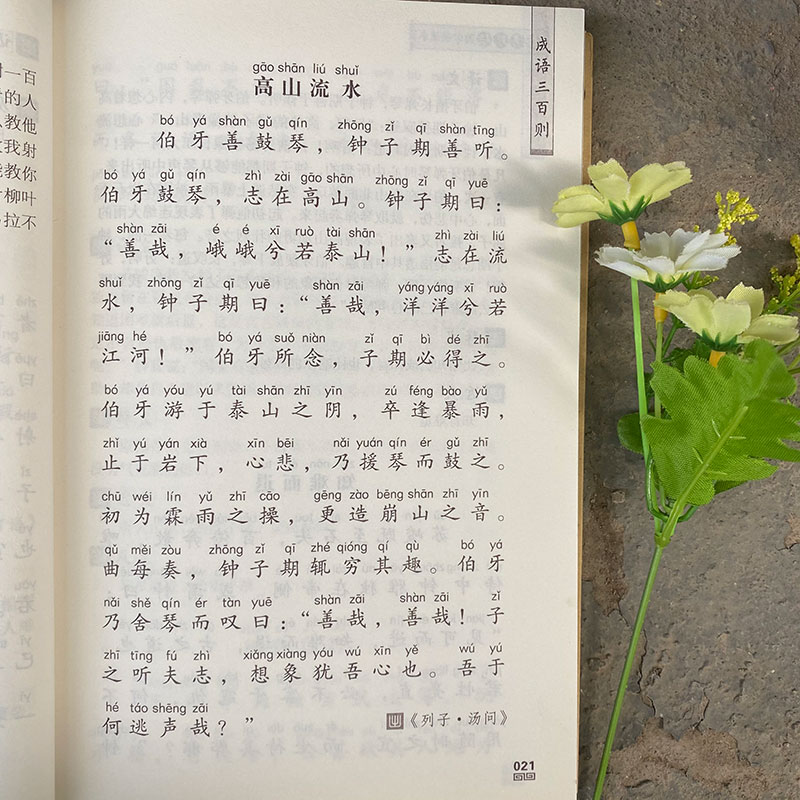 一百
的人
教他
我射
教你
柳叶
拉不
成语三百则
gāo shān liú shuǐ
高山流水
bó yá shàn gǔ qín zhōng zǐ qī shàn tīng
伯牙善鼓琴，钟子期善听。
bó yá gǔ qín zhì zài gāo shān zhōng zǐ qī yuē
伯牙鼓琴，志在高山。钟子期曰：
shàn zāi é é xī ruò tài shān zhì zài liú
“善哉，峨峨兮若泰山！”志在流
shuǐ zhōng zǐ qī yuē shàn zāi yáng yáng xī ruò
水，钟子期曰：“善哉，洋洋兮若
jiāng hé bó yá suǒ niàn zǐ qī bì dé zhī
江河！”伯牙所念，子期必得之。
bó yá yóu yú tài shān zhī yīn zú féng bào yǔ
伯牙游于泰山之阴，卒逢暴雨，
zhǐ yú yán xià xīn bēi nǎi yuán qín ér gǔ zhī
止于岩下，心悲，乃援琴而鼓之。
chū wéi lín yǔ zhī cāo gēng zào bēng shān zhī yīn
初为霖雨之操，更造崩山之音。
qǔ měi zòu zhōng zǐ qī zhé qióng qí qù bó yá
曲每奏，钟子期辄穷其趣。伯牙
nǎi shě qín ér tàn yuē shàn zāi shàn zāi zǐ
乃舍琴而叹曰：“善哉，善哉！子
zhī tīng fú zhì xiǎng xiàng yóu wú xīn yě wú yú
之听夫志，想象犹吾心也。吾于
hé táo shēng zāi
何逃声哉？”
《列子·汤问》
021